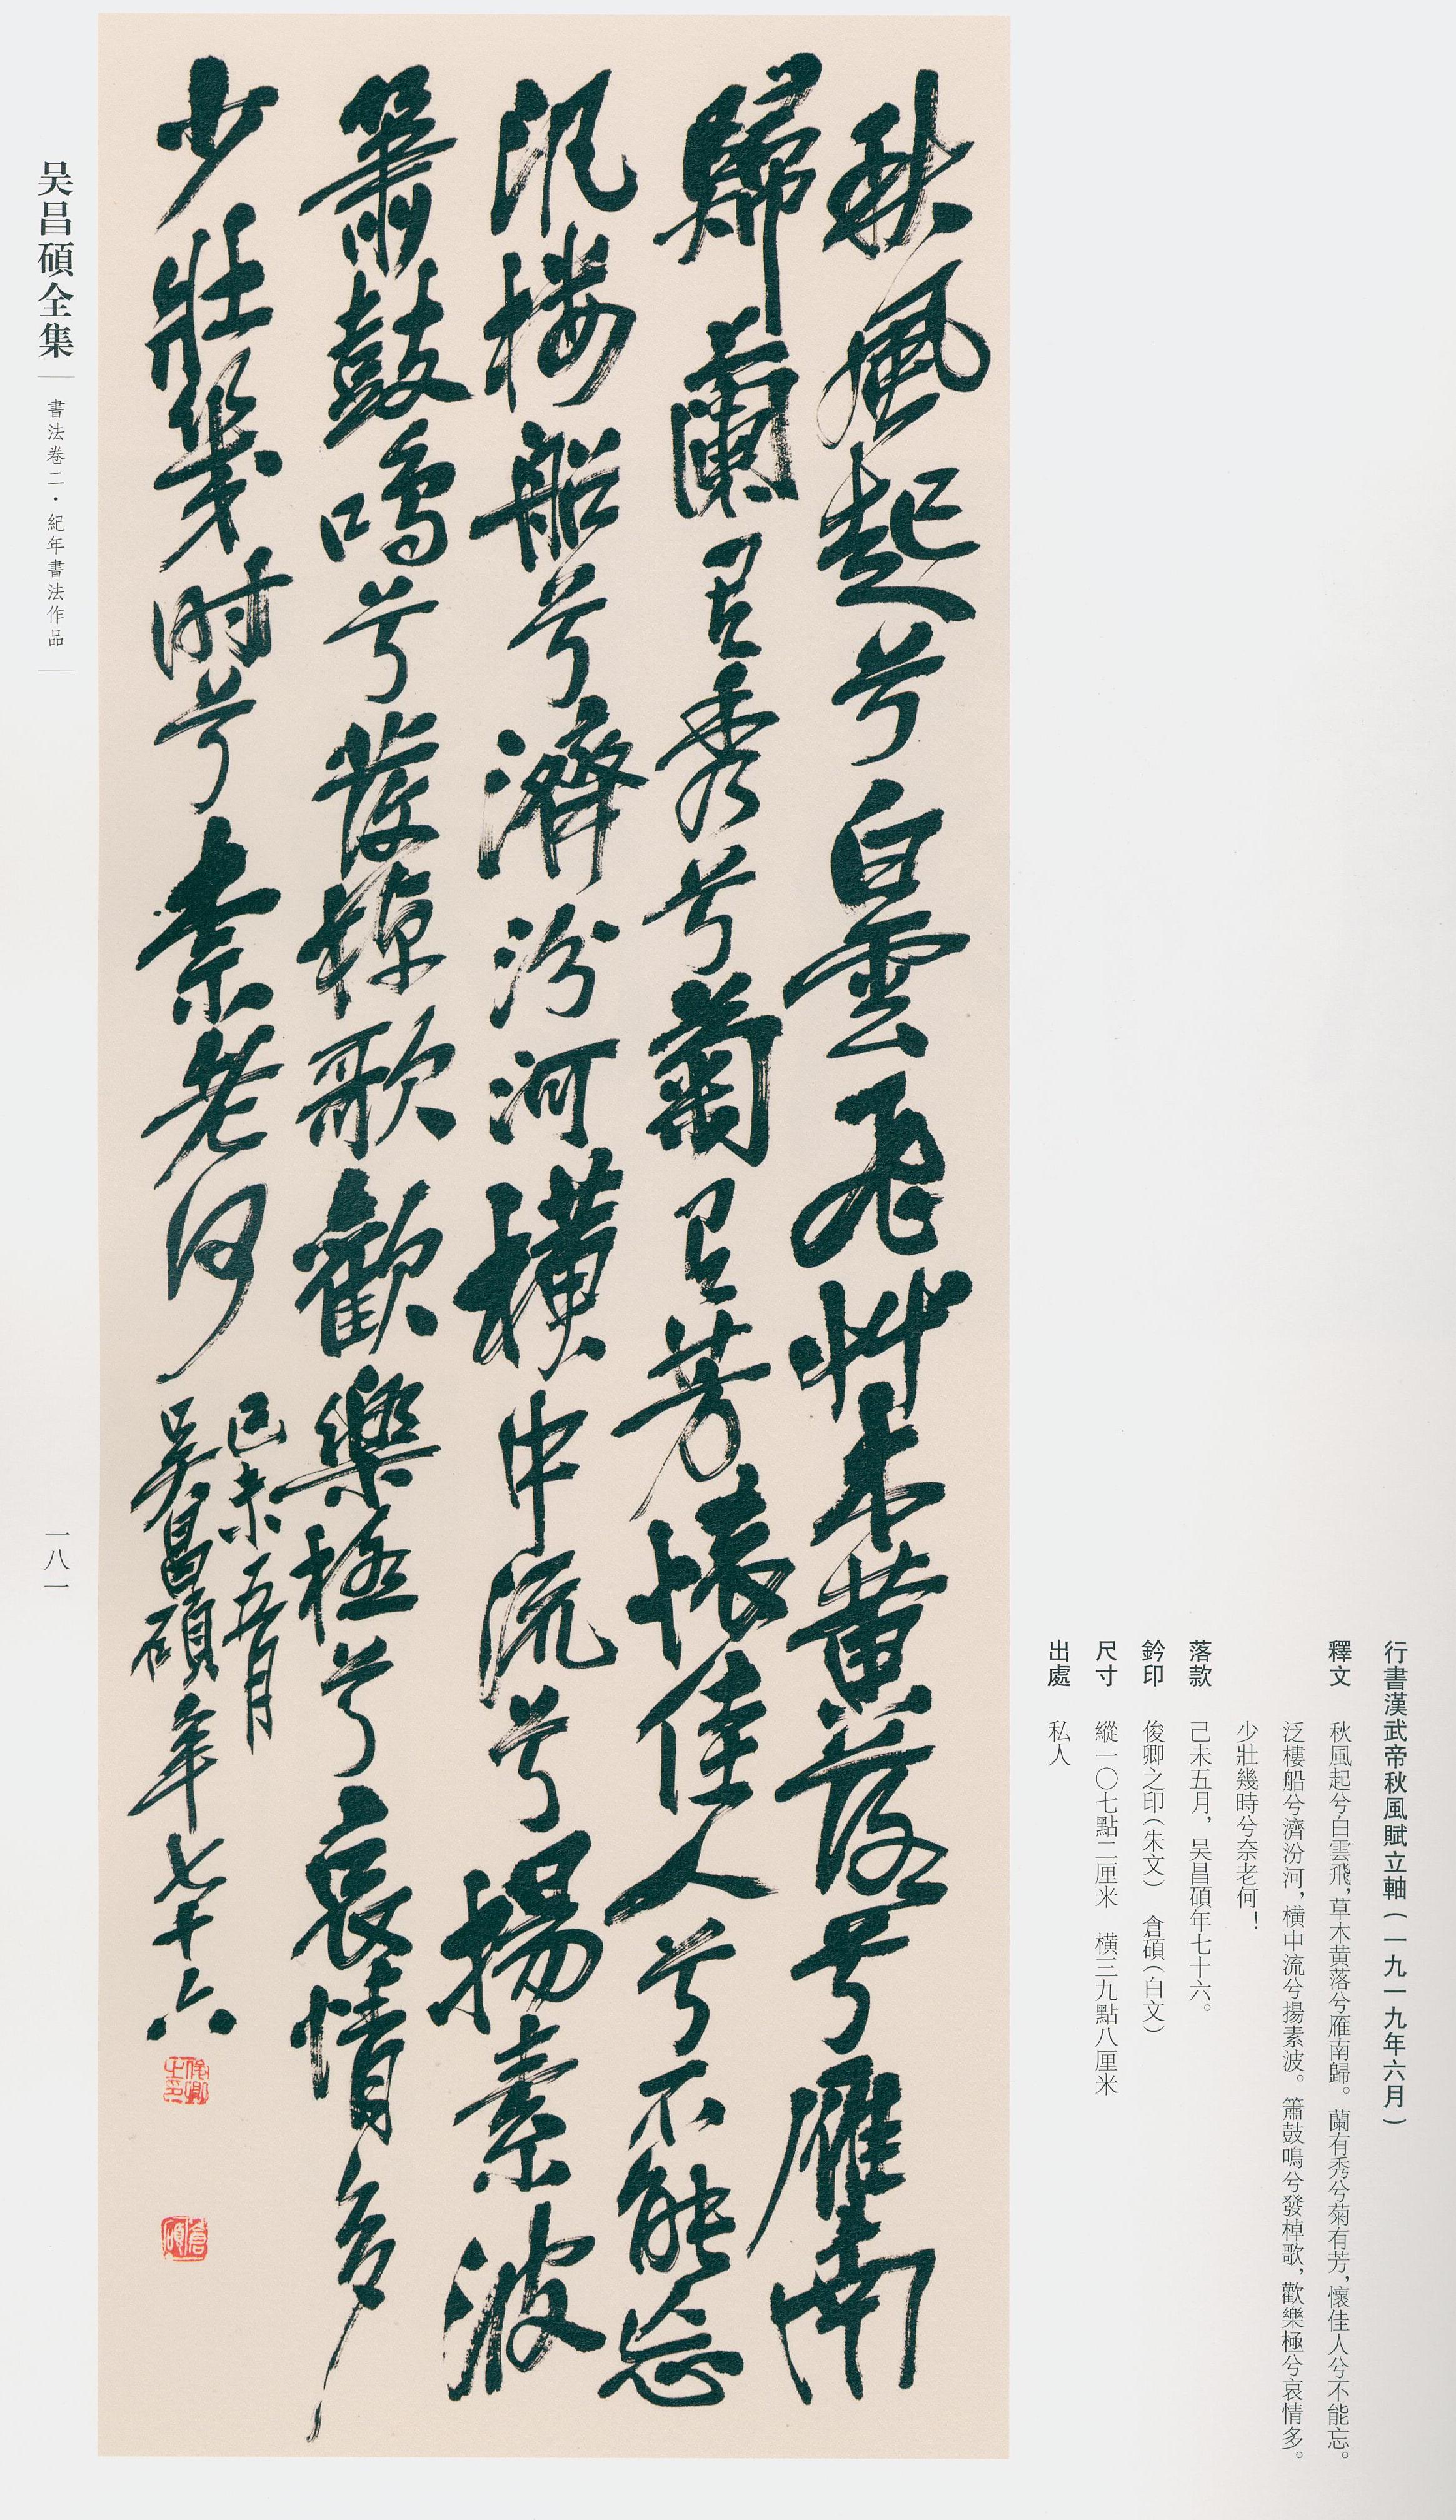 行書漢武帝秋風賦立軸(一九一九年六月)
釋文 秋風起兮白雲飛,草木黃落兮雁南歸。蘭有秀兮菊有芳,懷佳人兮不能忘。
泛樓船兮濟汾河,橫中流兮揚素波。簫鼓鳴兮發棹歌,歡樂極兮哀情多。
少壯幾時兮奈老何!
落款 己未五月,吴昌碩年七十六。
鈐印 俊卿之印(朱文) 倉碩(白文)
尺寸 縱一〇七點二厘米 橫三九點八厘米
出處 私人
秋風起兮白雲飛艸木黃落兮雁南
歸蘭有秀兮菊有芳懷佳人兮不能忘
汎楼船兮濟汾河橫中流兮揚素波
簫鼓鳴兮發棹歌歡樂極兮哀情多
少壯幾時兮柰老何
己未五月
吴昌碩年七十六
俊卿之印
倉碩
吴昌碩全集
書法卷二·紀年書法作品
一八一